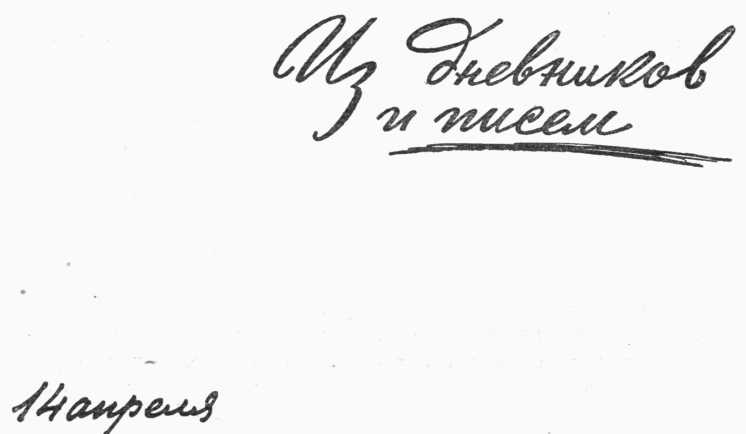 Из дневников
и писем
14 апреля